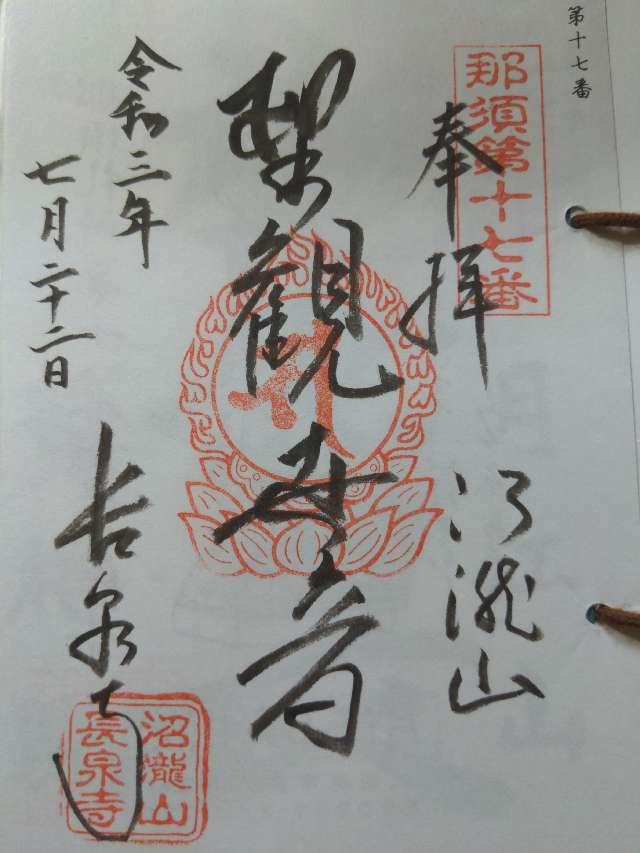 第十七番
那須第十七番
奉拝
沼瀧山
聖観世音
令和三年
七月二十二日
長泉寺
沼瀧山
長泉寺